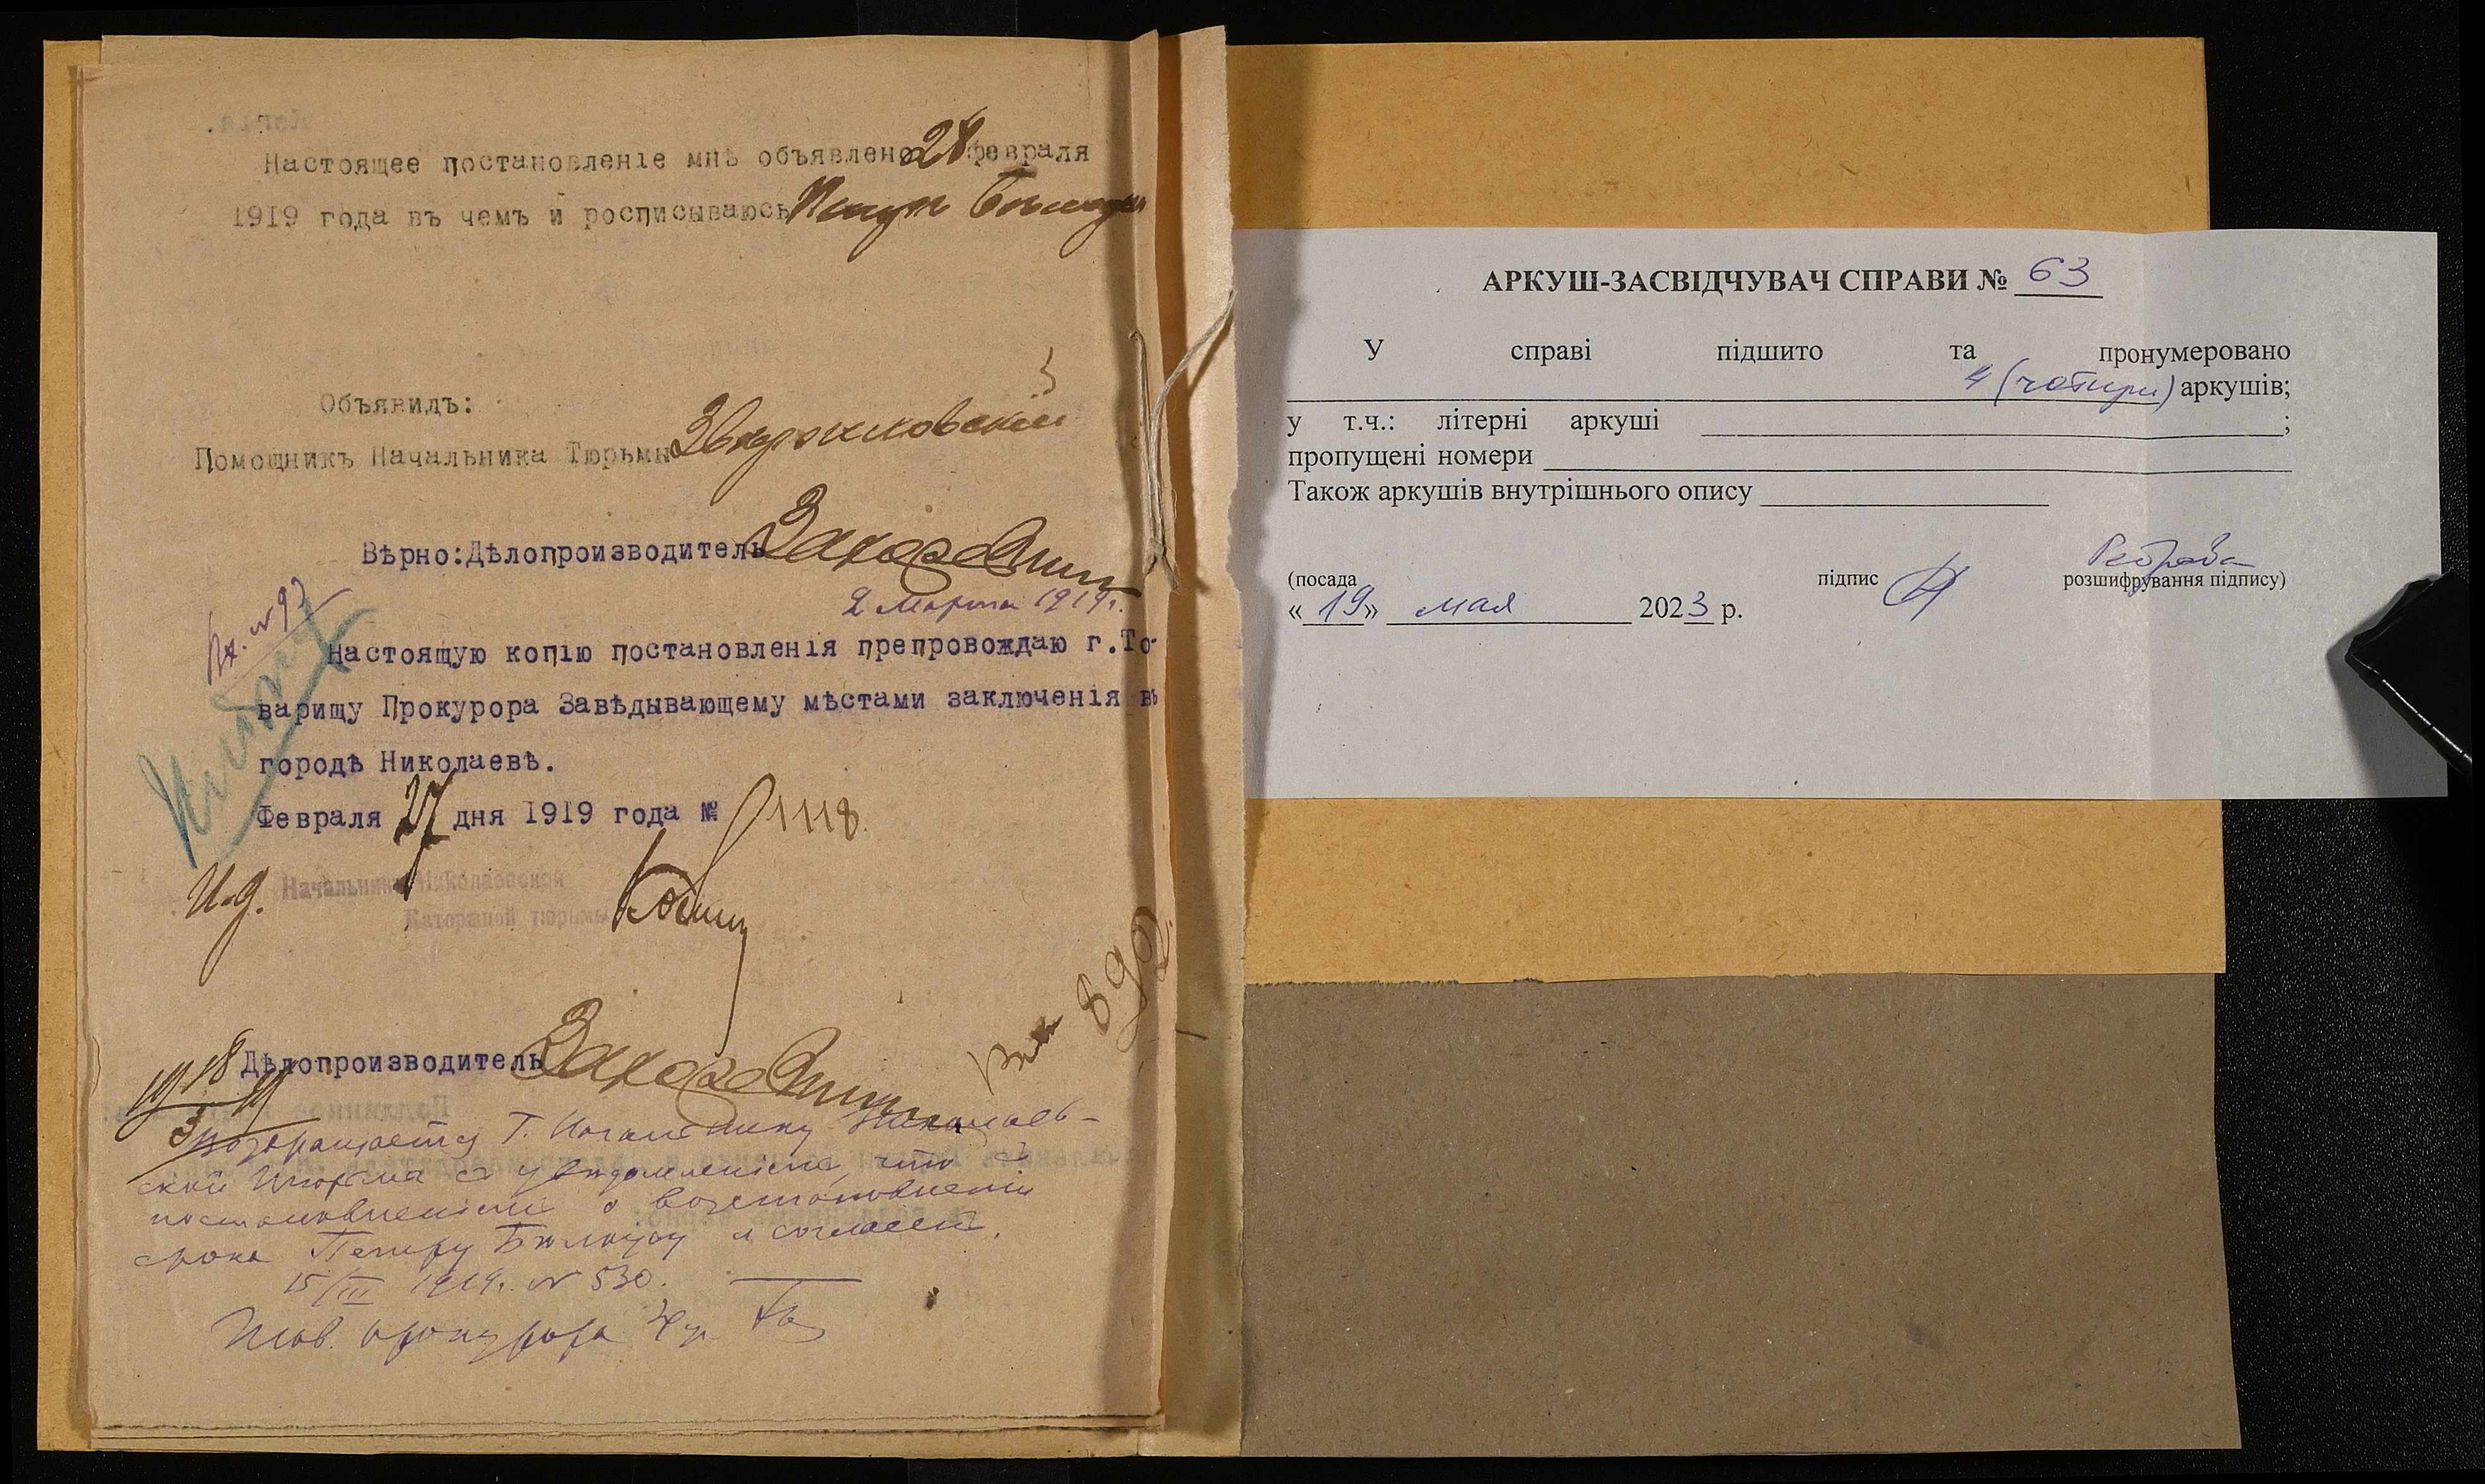 Настоящее постановленіе мнѣ объявлено 28 февраля
1919 года въ чемъ и росписываюсь Петръ
Объявилъ:
Помощникъ Начальника Тюрьмы
Вѣрно: Дѣлопроизводитель
2 Марта 1919 г.
Вх. № 93
Настоящую копію постановленія препровождаю г. То-
варищу Прокурора Завѣдывающему мѣстами заключенія въ
городѣ Николаевѣ.
Февраля 27 дня 1919 года № 1118.
И.д. Начальника Николаевской
Каторжной тюрьмы
Дѣлопроизводитель
Возвращается Г. Начальнику Николаев-
ской Тюрьмы съ увѣдомленіемъ, что съ
постановленіемъ о возстановленіи
срока Петру я согласенъ.
15/III 1919 г. № 530.
Тов. прокурора
АРКУШ-ЗАСВІДЧУВАЧ СПРАВИ № 63
У справі підшито та пронумеровано
4 (чотири) аркушів;
у т.ч.: літерні аркуші ;
пропущені номери
Також аркушів внутрішнього опису
(посада підпис розшифрування підпису)
«19» мая 2023 р.